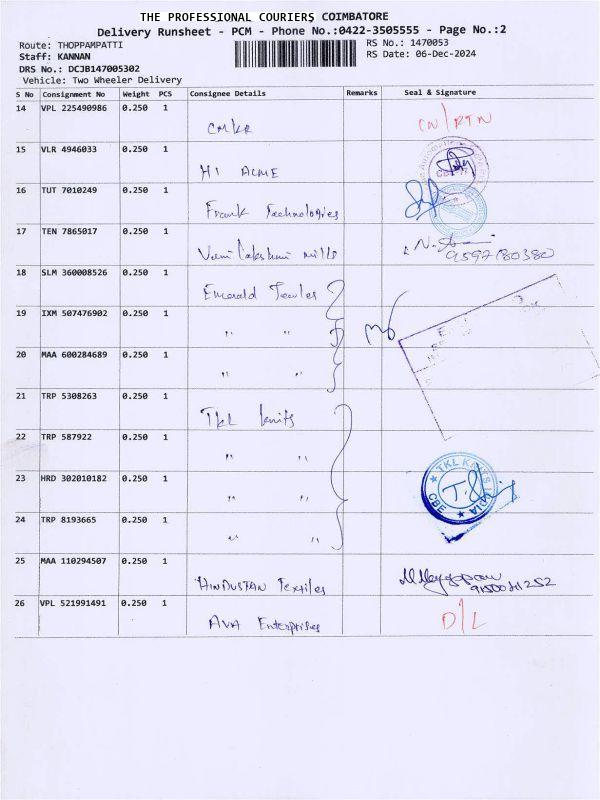 THE PROFESSIONAL COURIERS COIMBATORE
Delivery Runsheet - PCM - Phone No.:0422-3505555 - Page No.:2
Route: THOPPAMPATTI
RS No.: 1470053
Staff: KANNAN
RS Date: 06-Dec-2024
DRS No.: DCJB147005302
Vehicle: Two Wheeler Delivery
S No Consignment No Weight PCS Consignee Details Remarks Seal & Signature
14 VPL 225490986 0.250 1
CMKR CN/RTN
15 VLR 4946033 0.250 1
HI ACME
16 TUT 7010249 0.250 1
Frank Technologies
17 TEN 7865017 0.250 1
mills
18 SLM 360008526 0.250 1
Emerald
19 IXM 507476902 0.250 1
" "
20 MAA 600284689 0.250 1
" "
21 TRP 5308263 0.250 1
TKL knits
22 TRP 587922 0.250 1
" "
23 HRD 302010182 0.250 1
" "
TKL KNITS INDIA
CBE
24 TRP 8193665 0.250 1
" "
25 MAA 110294507 0.250 1
HINDUSTAN Textiles
26 VPL 521991491 0.250 1
AVA Enterprises D/L